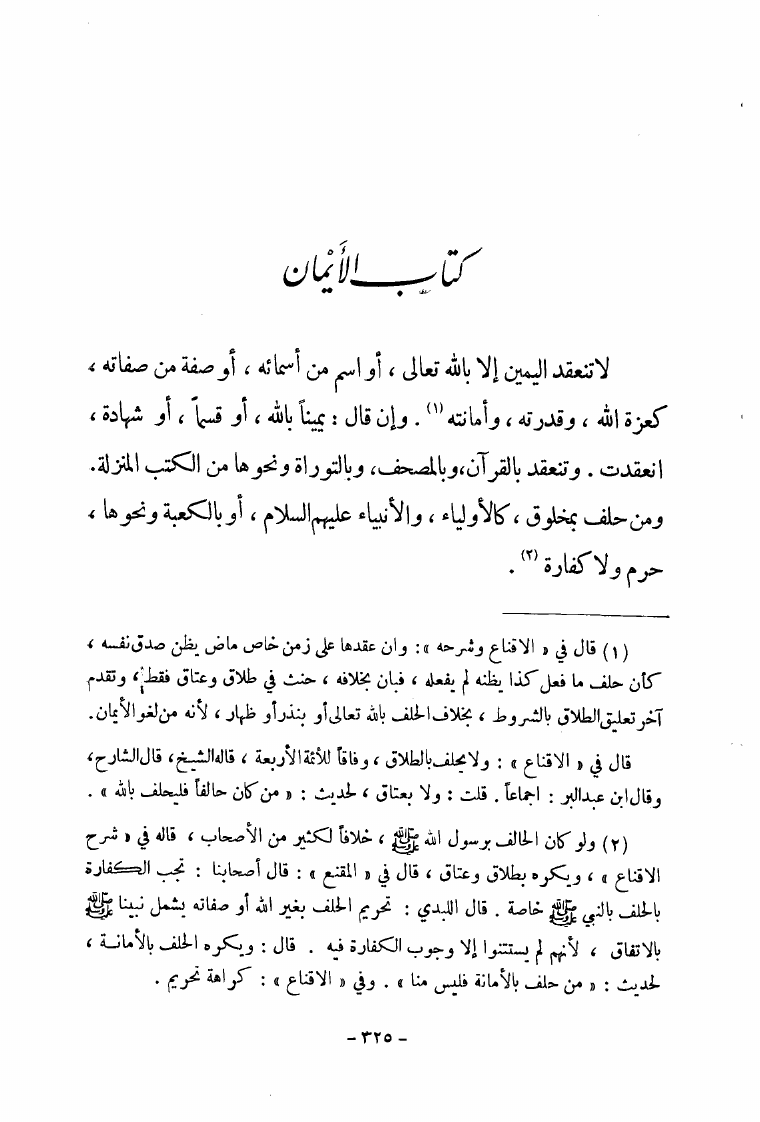 كتاب الأَيْمان
لا تنعقد اليمين إلا بالله تعالى ، أو اسم من أسمائه ، أو صفة من صفاته ،
كعزة الله ، وقدرته ، وأمانته (١) . وإن قال : يميناً بالله ، أو قسماً ، أو شهادة ،
انعقدت . وتنعقد بالقرآن، وبالمصحف، وبالتوراة ونحوها من الكتب المنزلة.
ومن حلف بمخلوق ، كالأولياء ، والأنبياء عليهم السلام ، أو بالكعبة ونحوها ،
حرم ولا كفارة (٢) .
(١) قال في « الاقناع وشرحه »: وان عقدها على زمن خاص ماض يظن صدق نفسه ،
كأن حلف ما فعل كذا يظنه لم يفعله ، فبان بخلافه ، حنث في طلاق وعتاق فقط ، وتقدم
آخر تعليق الطلاق بالشروط ، بخلاف الحلف بالله تعالى أو بنذر أو ظهار ، لأنه من لغو الأيمان.
قال في « الاقناع » : ولا يحلف بالطلاق ، وفاقاً للأئمة الأربعة ، قاله الشيخ ، قال الشارح،
وقال ابن عبد البر : اجماعاً . قلت : ولا بعتاق ، لحديث : « من كان حالفاً فليحلف بالله » .
(٢) ولو كان الحالف برسول الله ﷺ ، خلافاً لكثير من الأصحاب ، قاله في « شرح
الاقناع » ، ويكره بطلاق وعتاق ، قال في « المقنع » : قال أصحابنا : تجب الكفارة
بالحلف بالنبي ﷺ خاصة . قال اللبدي : تحريم الحلف بغير الله أو صفاته يشمل نبينا ﷺ
بالاتفاق ، لأنهم لم يستثنوا إلا وجوب الكفارة فيه . قال : ويكره الحلف بالأمانة ،
لحديث : « من حلف بالأمانة فليس منا » . وفي « الاقناع » : كراهة تحريم .
- ٣٢٥ -